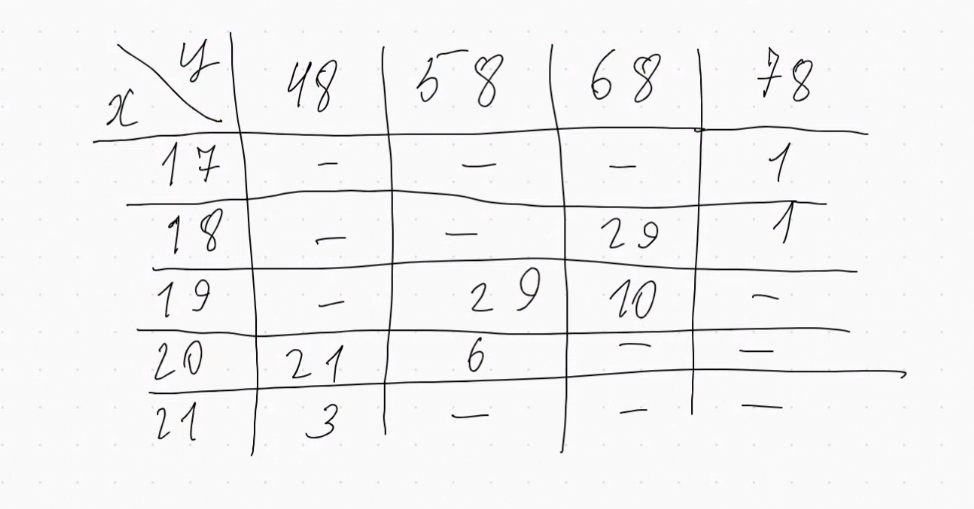 x y 48 58 68 78
17 - - - 1
18 - - 29 1
19 - 29 10 -
20 21 6 - -
21 3 - - -